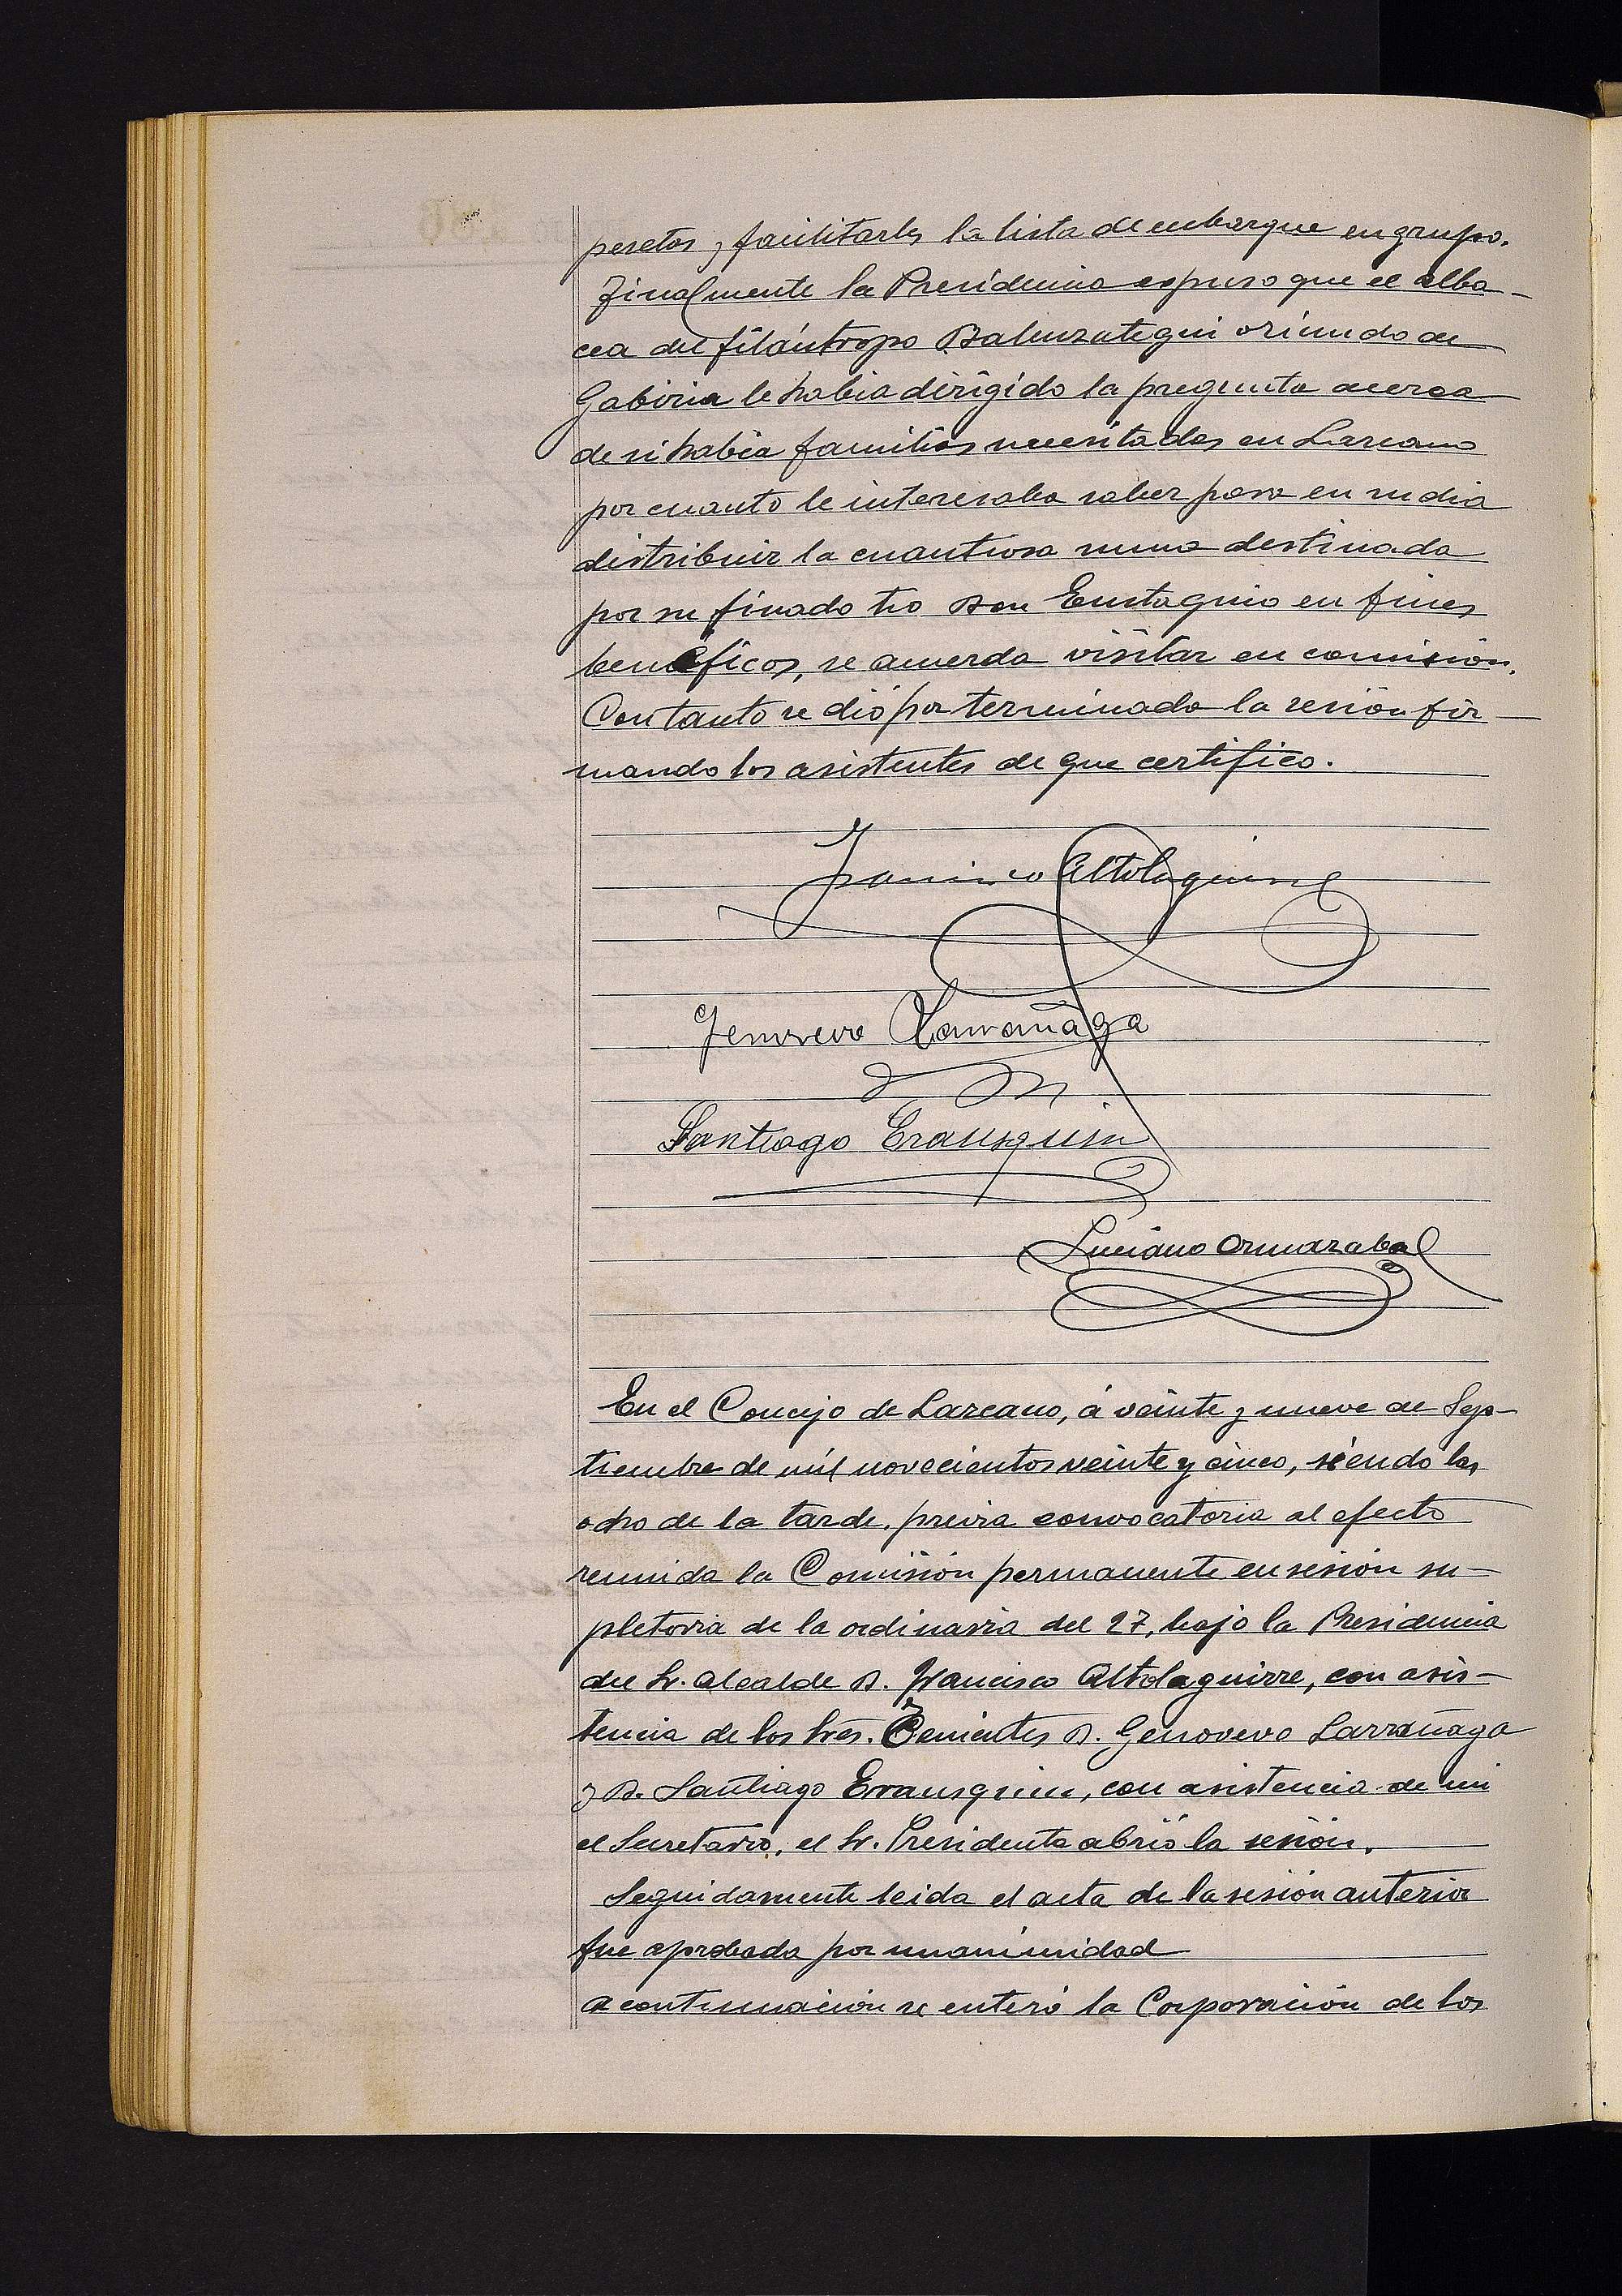 pesetas y facilitarles la lista de embarque en grupo.
Finalmente la Presidencia espuso que el alba-
cea del filántropo Balenzategui oriundo de
Gabiria le habia dirigido la pregunta acerca
de si habia familias necesitadas en Lazcano
por cuanto le interesaba saber para en su dia
distribuir la cuantiosa suma destinada
por su finado tio Don Eustaquio en fines
benéficos, se acuerda visitar en comisión.
Con tanto se dió por terminada la sesión fir-
mando los asistentes de que certifico.
Francisco Altolaguirre
Jenoveva Larrañaga
Santiago Erausquin
Luciano Ormazabal
En el Concejo de Lazcano, á veinte y nueve de Sep-
tiembre de mil novecientos veinte y cinco, siendo las
ocho de la tarde, previa convocatoria al efecto
reunida la Comisión permanente en sesión su-
pletoria de la ordinaria del 27, bajo la Presidencia
del Sr. Alcalde D. Francisco Altolaguirre, con asis-
tencia de los Sres. Tenientes D. Genovevo Larrañaga
y D. Santiago Erausquin, con asistencia de mi
el Secretario, el Sr. Presidente abrió la sesión.
Seguidamente leida el acta de la sesión anterior
fue aprobada por unanimidad
A continuación se enteró la Corporación de los